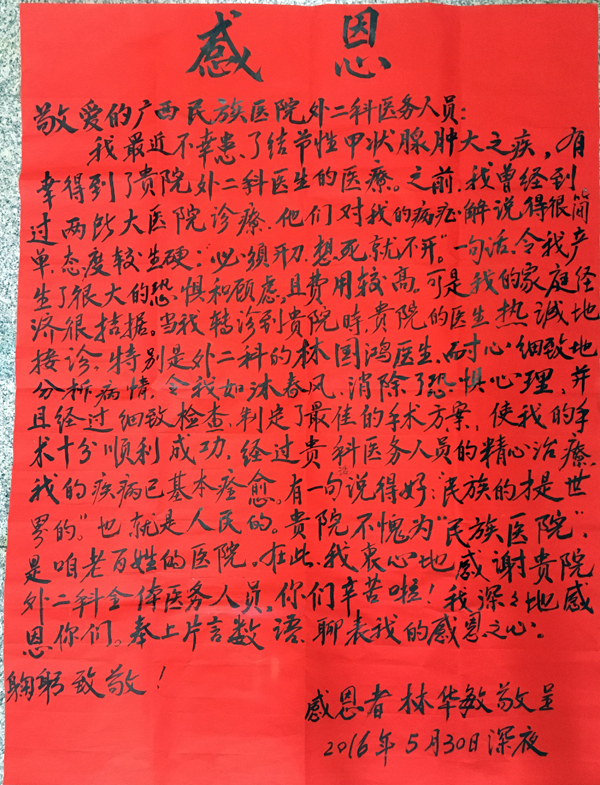 感恩
敬爱的广西民族医院外二科医务人员：
我最近不幸患了结节性甲状腺肿大之疾，有
幸得到了贵院外二科医生的医疗。之前，我曾经到
过两所大医院诊疗，他们对我的病症解说得很简
单，态度较生硬：“必须开刀，想死就不开”。一句话，令我产
生了很大的恐惧和顾虑，且费用较高，可是我的家庭经
济很拮据。当我转诊到贵院时，贵院的医生热诚地
接诊，特别是外二科的林国鸿医生，耐心细致地
分析病情，令我如沐春风，消除了恐惧心理，并
且经过细致检查，判定了最佳的手术方案，使我的手
术十分顺利成功，经过贵科医务人员的精心治疗，
我的疾病已基本痊愈。有一句说得好：“民族的才是世
界的。”也就是人民的。贵院不愧为“民族医院”，
是咱老百姓的医院，在此，我衷心地感谢贵院
外二科全体医务人员，你们辛苦啦！我深々地感
恩你们。奉上片言数语，聊表我的感恩之心。
鞠躬致敬！
感恩者 林华敏敬呈
2016年5月30日深夜